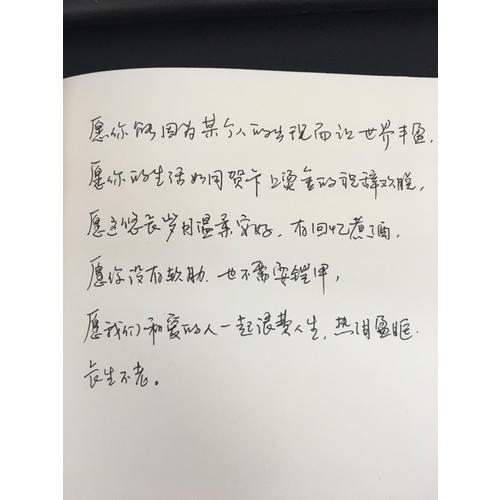 愿你能因为某个人的出现而让世界丰盈,
愿你的生活如同贺卡上烫金的祝辞欢脱,
愿这悠长岁月温柔安好,有回忆煮酒,
愿你没有软肋.也不需要铠甲,
愿我们和爱的人一起浪费人生,热泪盈眶.
长生不老。